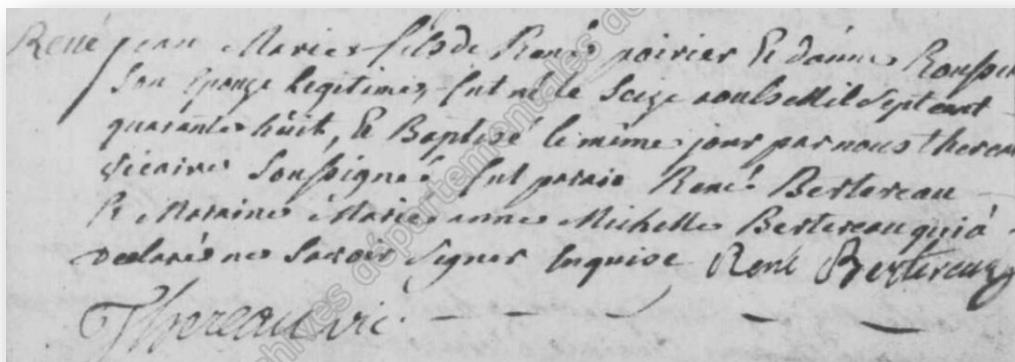 René jean Marie fils de René poirier Et d'anne Rousse
Son Epouze legitime, fut né le Seize aoust Mil Sept cent
quarante huit, Et Baptisé le même jour par nous thereau
Vicaire Soussigné fut parain René Bertereau
Et Maraine Marie anne Michelle Bertereau qui a
declaré ne Savoir Signer Enquise René Bertereau
Thereau vic.